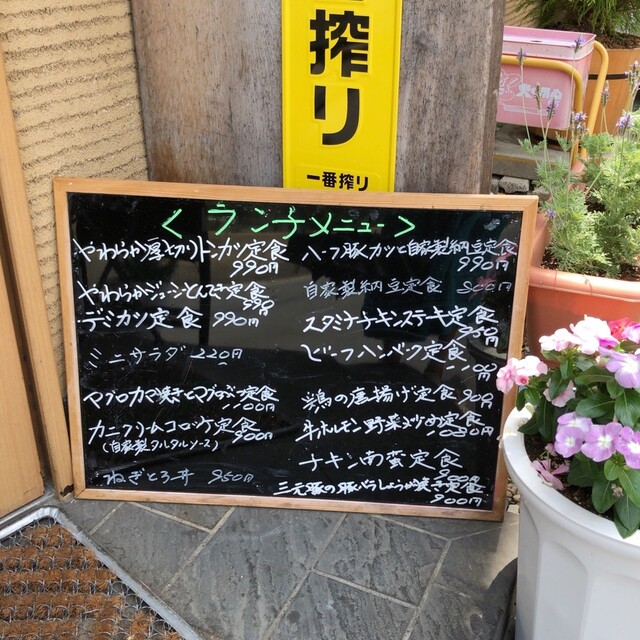 搾り
一番搾り
<ランチメニュー>
やわらか厚切りトンカツ定食
990円
やわらかジューシーとんてき定食
デミカツ定食 990円
ミニサラダ 220円
マグロカマ焼きとマグロ定食
1100円
カニクリームコロッケ定食
(自家製タルタルソース) 900円
ねぎとろ丼 950円
ハーフ豚カツと自家製納豆定食
990円
自家製納豆定食 800円
スタミナチキンステーキ定食
ビーフハンバーグ定食
1100円
鶏の唐揚げ定食 900円
牛ホルモン野菜炒め定食
1080円
チキン南蛮定食
三元豚の豚バラしょうが焼き定食
900円